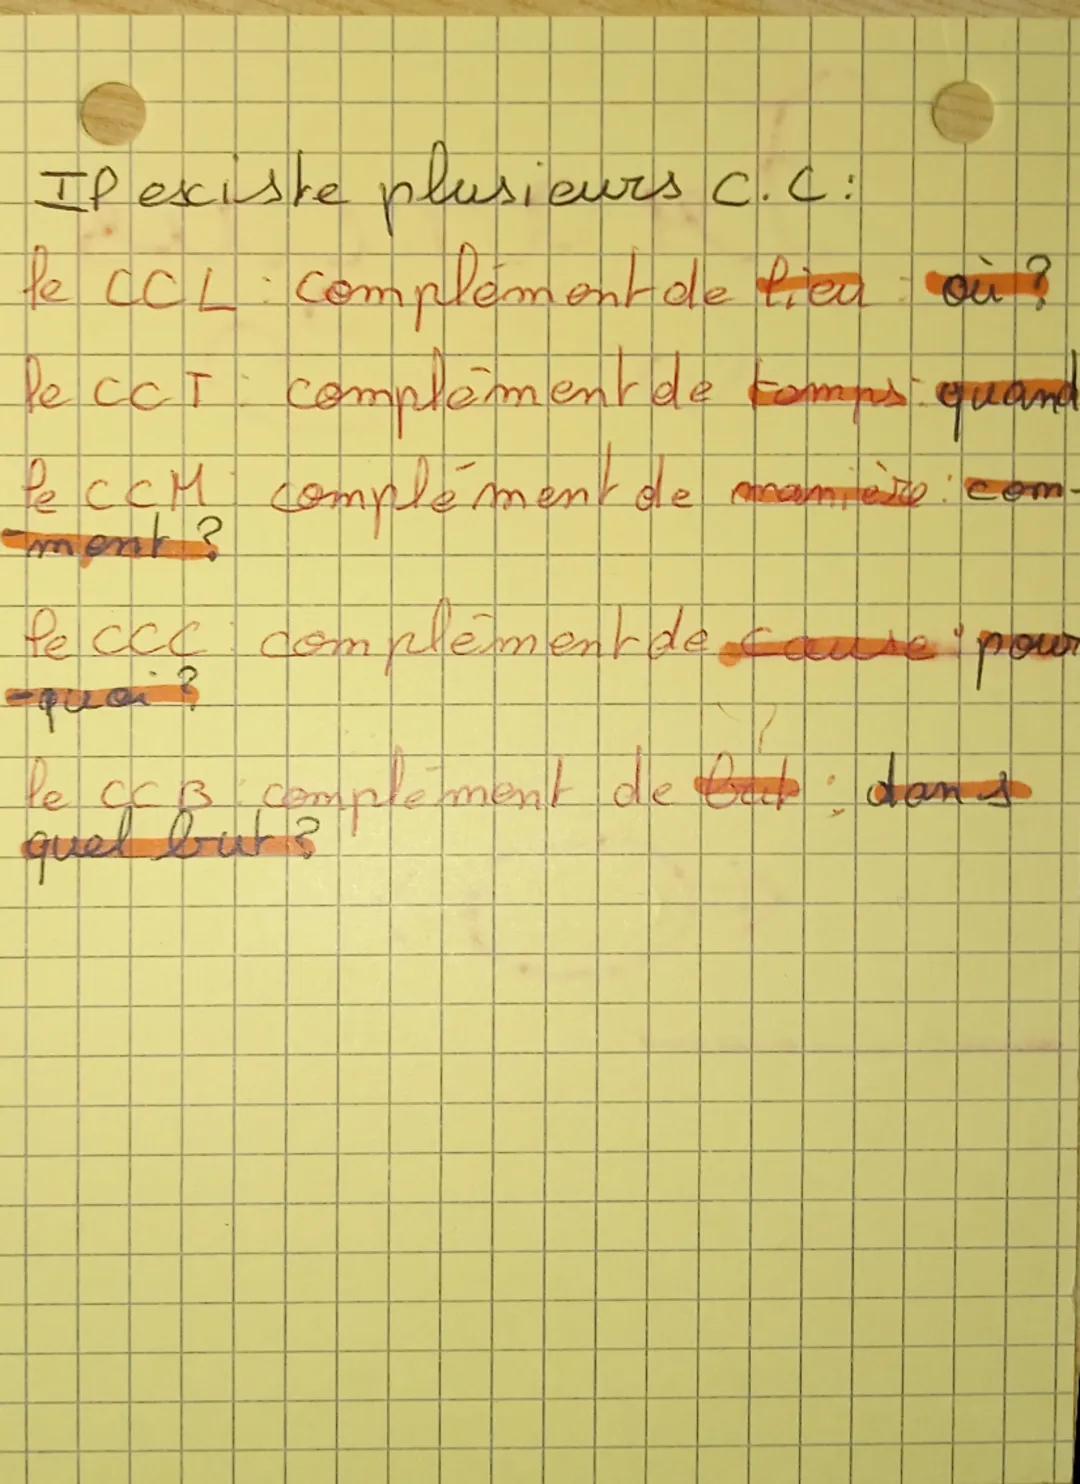 Il existe plusieurs C.C:
le CCL : complément de lieu : où ?
le CCT : complément de temps : quand
le CCM : complément de manière : com-
-ment ?
le CCC : complément de cause : pour
-quoi ?
le CCB : complément de but : dans
quel but ?